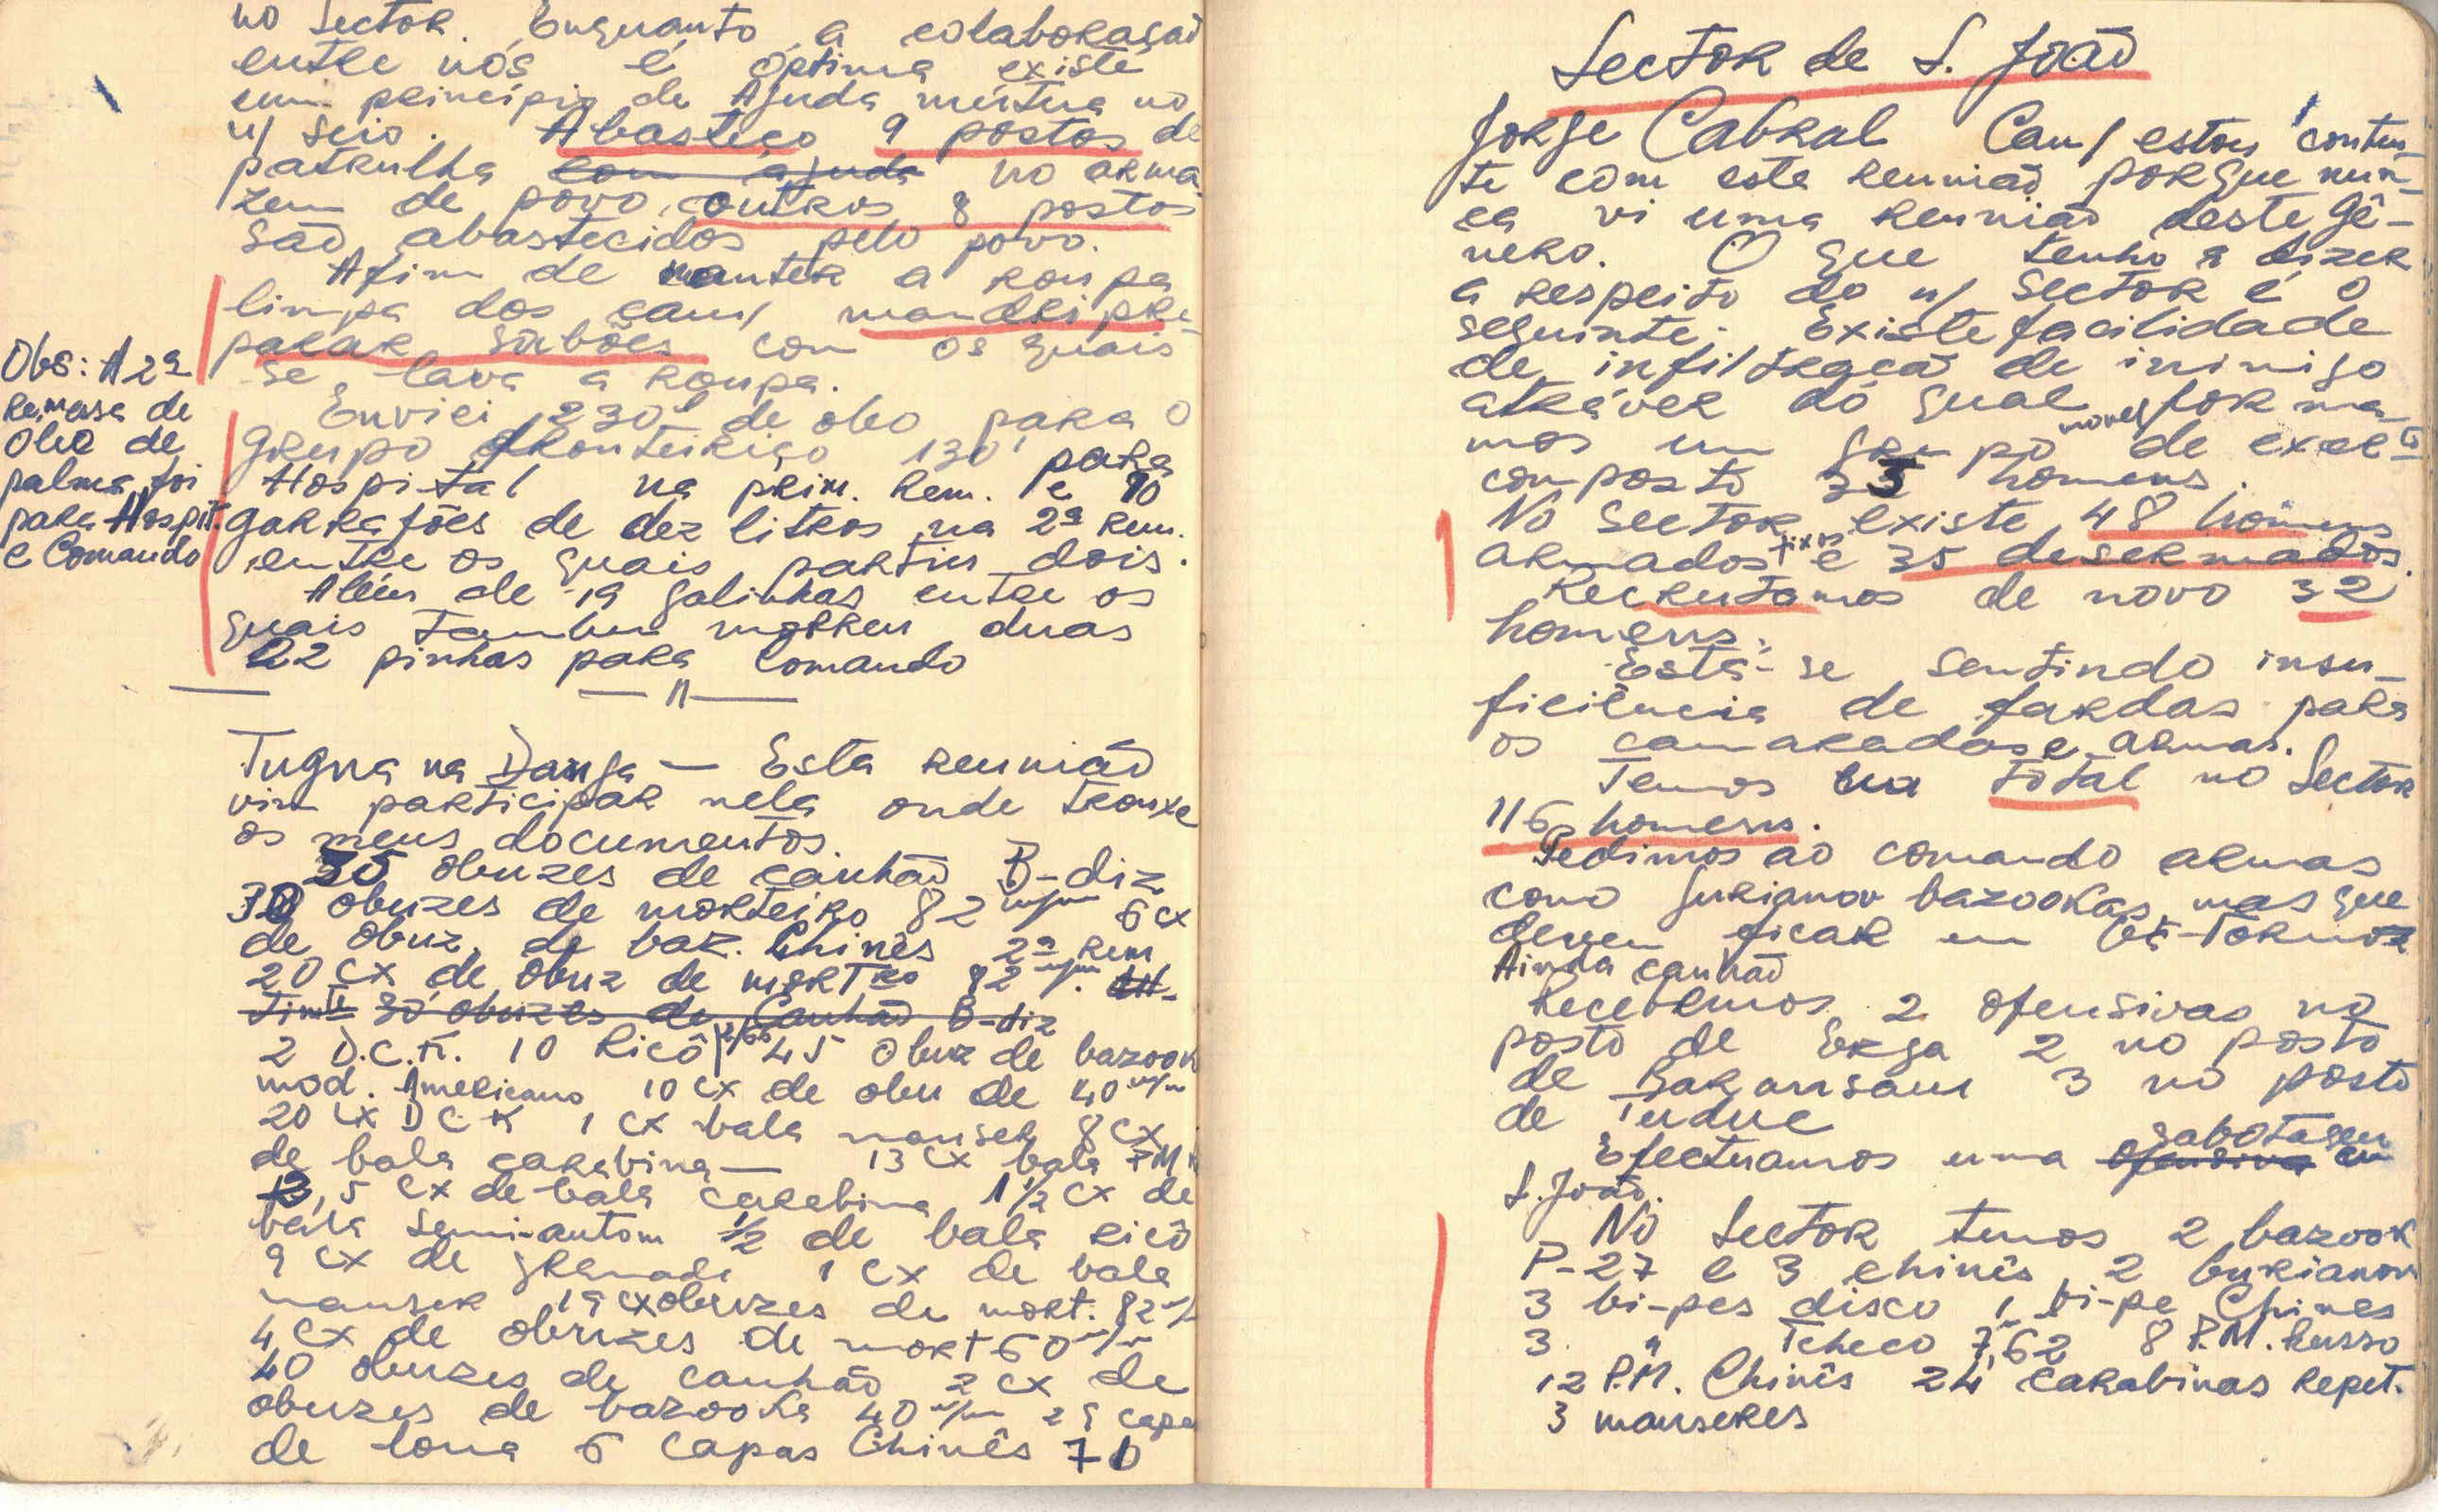 no Sector. Enquanto a colaboração
entre nós é óptima existe
um princípio de Ajuda mútua no
n/ seio. Abasteço 9 postos de
patrulha com ajuda no arma
zem de povo, outros 8 postos
são abastecidos pelo povo.
Afim de manter a roupa
limpa dos cam/ mandei pre-
parar sabões com os quais
se lava a roupa.
Enviei 230l de oleo para o
Grupo fronteiriço 130l para
Hospital na prim. Rem. e 10
garrafões de dez litros na 2ª Rem.
entre os quais partiu dois.
Além de 19 galinhas entre os
quais tambem morreu duas
22 pinhas para Comando
Obs: A 2ª
Remasa de
Oleo de
palma foi
para Hospit.
e Comando
— 11 —
Tugna na Danfa — Esta reunião
vim participar nela onde trouxe
os meus documentos.
35 obuzes de canhão B-diz
30 obuzes de morteiro 82 m/m 6 cx
de obuz de baz. Chinês 2ª Rem
20 cx de obuz de mortro 82 m/m.
30 obuzes de Canhão B-diz
2 D.C.K. 10 Ricô 45 Obuz de bazook
mod. Americano 10 cx de obu de 40 m/m
20 cx D C K 1 cx bala mauser 8 cx
de bala carabina — 13 cx bala P M
,5 cx de bala carabina 1 1/2 cx de
bala semi-autom 1/2 de bala ricô
9 cx de granade 1 cx de bala
mauser 19 cx obuzes de mort. 82 m/
4 cx de obuzes de mort 60 m/m
40 obuzes de canhão 2 cx de
obuzes de bazooka 40 m/m 29 capa
de lona 6 capas Chinês 70
Sector de S. João
Jorge Cabral Cam/ estou conten-
te com esta reunião porque nun-
ca vi uma reunião deste gê-
nero. O que tenho a dizer
a respeito do n/ Sector é o
seguinte: Existe facilidade
de infiltração de inimigo
atráver do qual forma
mos um grupo movel de exerto
composto 33 homens.
No Sector existe 48 homens
armados fixos e 35 desarmados.
Recrutamos de novo 32
homens.
Está-se sentindo insu-
ficiência de fardas para
os camaradas e armas.
Temos na total no Sector
116 homens.
Pedimos ao comando armas
como gurianov bazookas, mas que
devem ficar em
Ainda canhão
Recebemos 2 ofensivas no
posto de Erga 2 no posto
de Bakansam 3 no posto
de Tudue
Efectuamos uma ofensiva sabotagem em
S. João.
No Sector temos 2 bazook
P-27 e 3 chinês 2 gurianov
3 bi-pes disco 1 bi-pe Chines
3 " Tcheco 7,62 8 P.M. Russo
12 P.M. Chinês 24 carabinas repet.
3 mauseres